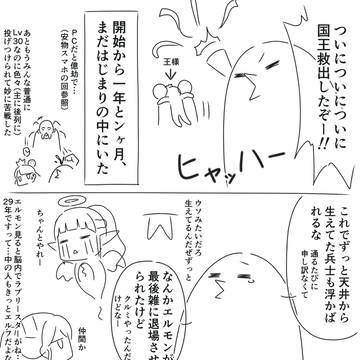 ついについについに
国王救出したぞー!!
王様
ヒャッハー
開始から一年とンヶ月、
まだはじまりの中にいた
PCだと億劫で…
(安物スマホの回参照)
あともうみんな普通に
Lv30なのに色々(主に後列に)
投げつけられて妙に苦戦した
これでずっと天井から
生えてた兵士も浮かば
れるな
通るたびに
申し訳なくて
ウソみたいだろ
生えてるんだぜずっと
なんかエルモンが
最後雑に退場させ
られたけど
クルミやったんだ
けどなー
ちゃんとやれー
仲間か
エルモン見ると脳内でラブリースターがね…
29年ですって…中の人もきっとエルフだよな